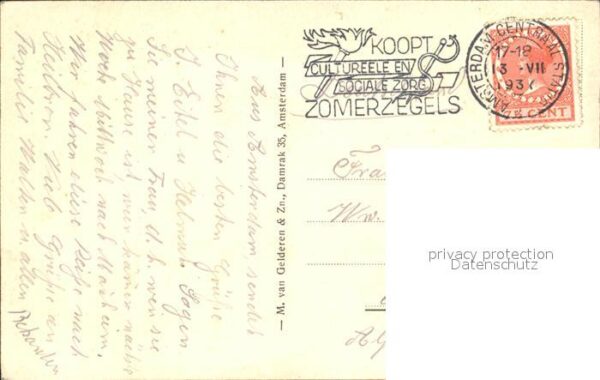 KOOPT
CULTUREELE EN
SOCIALE ZORG
ZOMERZEGELS
AMSTERDAM CENTRAAL STATION
17-18
13 VII
193
CENT
Aus Amsterdam, sendet
Ihnen die besten Grüße
J. Eitel u. Helmut. Sagen
Sie meiner Frau, d. h. wen sie
zu Hause ist, wir kämen nächste
Woche Mittwoch nach
Wir fahren diese nach
Viele Grüße an
Tante u. allen
— M. van Gelderen & Zn., Damrak 35, Amsterdam —
Fra
Ww.
privacy protection
Datenschutz